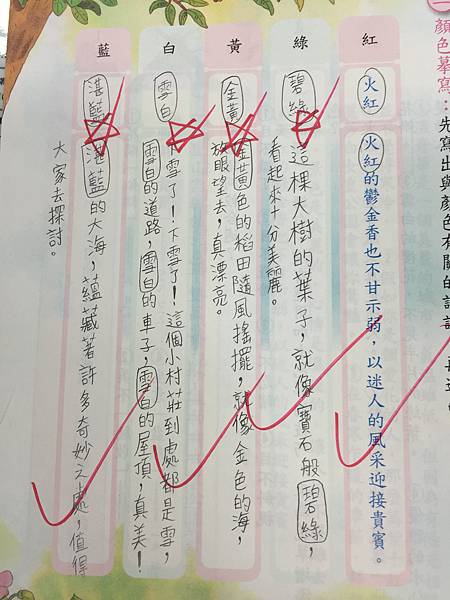 顏色摹寫：先寫出與顏色有關的
紅
火紅
火紅的鬱金香也不甘示弱，以迷人的風采迎接貴賓。
綠
碧綠
這棵大樹的葉子，就像寶石般碧綠，
看起來十分美麗。
黃
金黃
金黃色的稻田隨風搖擺，就像金色的海，
放眼望去，真漂亮。
白
雪白
下雪了！下雪了！這個小村莊到處都是雪，
雪白的道路，雪白的車子，雪白的屋頂，真美！
藍
湛藍
湛藍的大海，蘊藏著許多奇妙之處，值得
大家去探討。